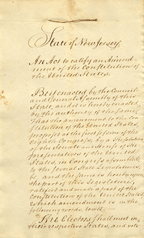 State of New Jersey.
An Act to ratify an Amend-
ment of the Constitution of
the United States.
Be it enacted by the Council
and General Assembly of this
State, and it is hereby enacted
by the authority of the same,
That the amendment to the Con-
stitution of the United States,
proposed at the first session of the
eighth Congress, by a Resolution
of the Senate and House of
Representatives of the United
States, in Congress assembled,
be, and the same is hereby on
the part of this State
ratified and made a part of the
Constitution of the United States,
which amendment is in the
following words, to wit,
"The Electors shall meet in
their respective States, and vote